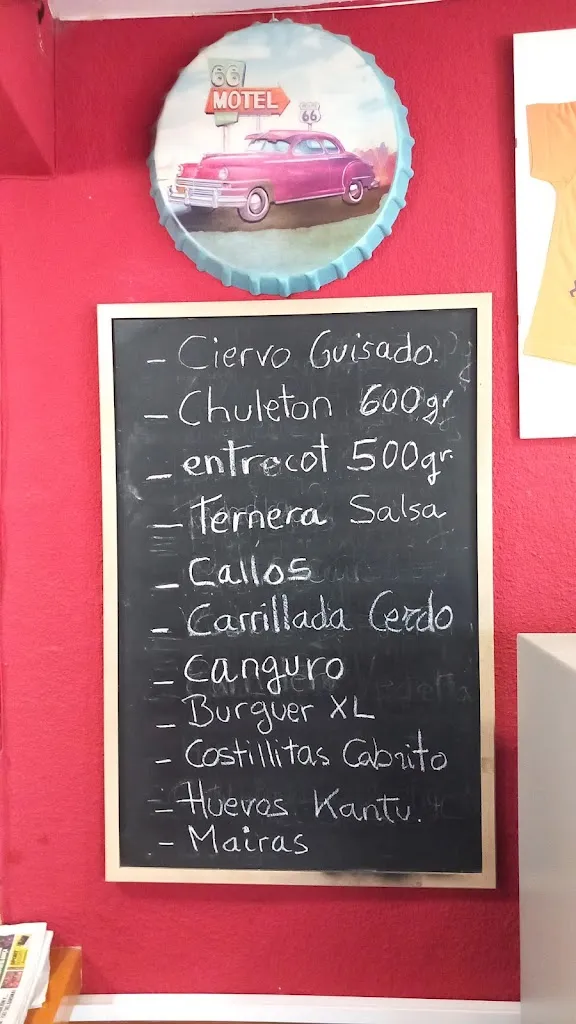 66
MOTEL
66
- Ciervo Guisado.
- Chuleton 600gr
- entrecot 500gr.
- Ternera Salsa
- Callos
- Carrillada Cerdo
- Canguro
- Burguer XL
- Costillitas Cabrito
- Huevos Kantu.
- Mairas